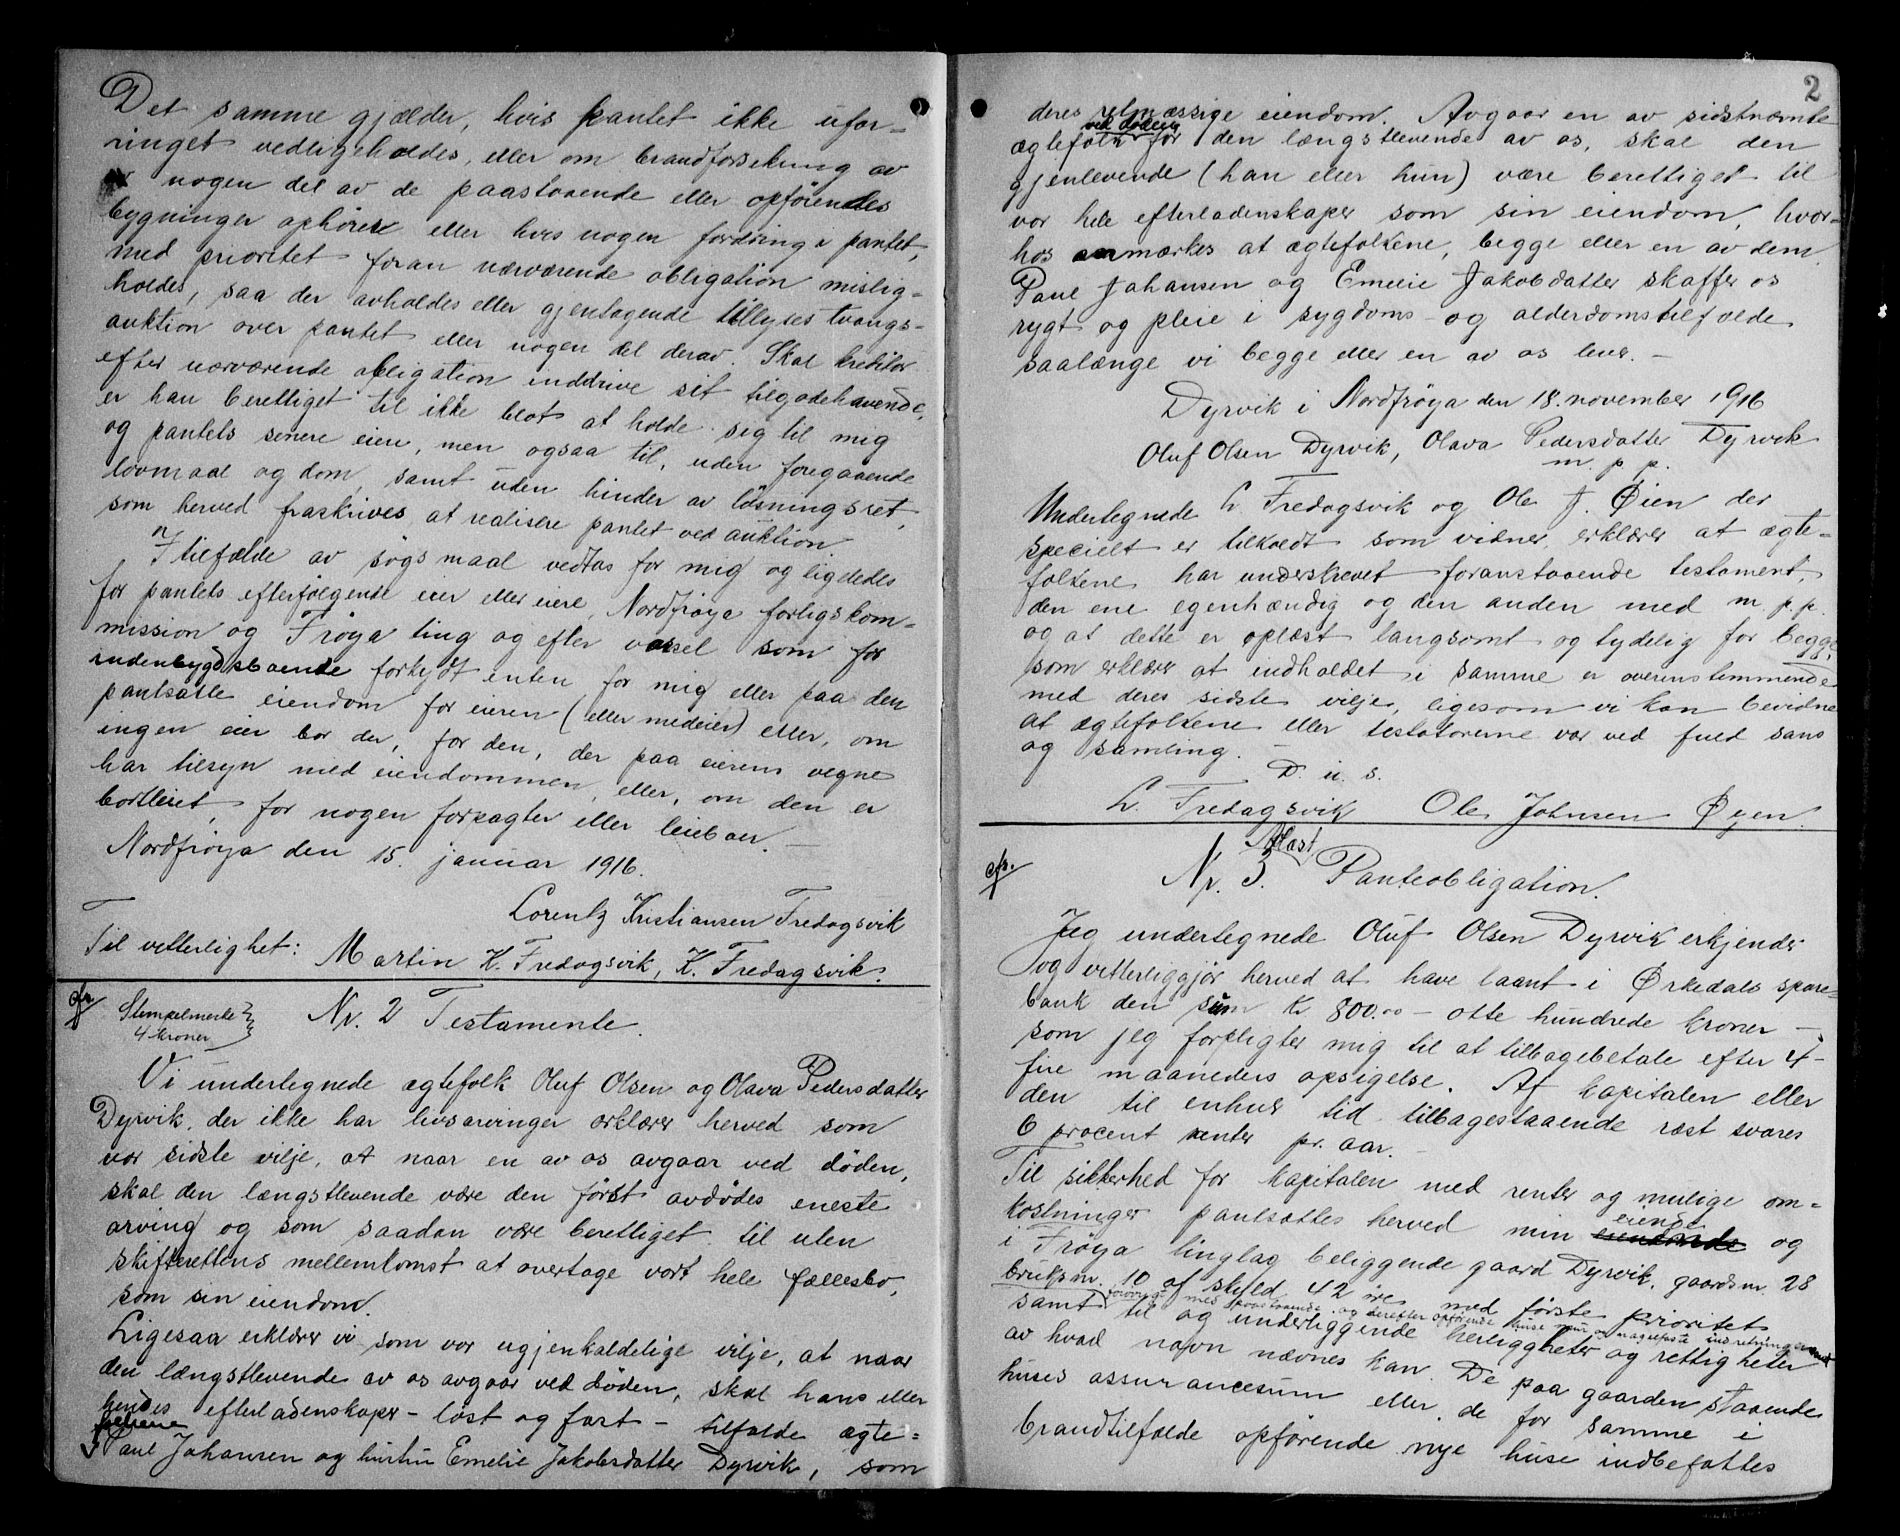 Det samme gjælder, hvis pantet ikke ufor-
ringet vedligeholdes, eller om brandforsikring av
nogen del av de paastaaende eller opførendes
bygninger ophører eller hvis nogen fordring i pantet,
med prioritet foran nærværende obligation mislig-
holdes, saa der avholdes eller gjentagende tillyses tvangs-
auktion over pantet eller nogen del derav. Skal kreditor
efter nærværende obligation inddrive sit tilgodehavende,
er han berettiget til ikke blot at holde sig til mig
og pantets senere eier, men ogsaa til, uden foregaaende
lovmaal og dom, samt uden hinder av løsningsret,
som herved fraskrives at realisere pantet ved auktion.
I tilfælde av søgsmaal vedtas for mig og ligeledes
for pantets efterfølgende eier eller eiere, Nordfrøya forligskom-
mission og Frøya ting og efter varsel som for
indenbygdsboende forkyndt enten for mig eller paa den
pantsatte eiendom for eieren (eller medeier) eller, om
ingen eier bor der, for den, der paa eierens vegne
har tilsyn med eiendommen, eller, om den er
bortleiet, for nogen forpagter eller leieboer. —
Nordfrøya den 15. januar 1916.
Lorentz Kristiansen Fredagsvik
Til vitterlighet: Martin K. Fredagsvik, K. Fredagsvik.
Stempelmerke
4 kroner
Nr. 2 Testamente.
Vi undertegnede ægtefolk Oluf Olsen og Olava Pedersdatter
Dyrvik, der ikke har livsarvinger erklærer herved som
vor sidste vilje, at naar en av os avgaar ved døden,
skal den længstlevende være den først avdødes eneste
arving og som saadan være berettiget til uten
skifterettens mellemkomst at overtage vort hele fællesbo,
som sin eiendom.
Ligesaa erklærer vi som vor ugjenkaldelige vilje, at naar
den længstlevende av os avgaar ved døden, skal hans eller
hendes efterladenskaper - løst og fast - tilfalde ægte-
folkene
Paul Johansen og hustru Emelie Jakobsdatter Dyrvik, som
2
deres retmæssige eiendom. Avgaar en av sidstnævnte
ved døden
ægtefolk før den længstlevende av os, skal den
gjenlevende (han eller hun) være berettiget til
vor hele efterladenskaper som sin eiendom, hvor-
hos anmærkes at ægtefolkene, begge eller en av dem
Paul Johansen og Emelie Jakobsdatter skaffer os
rygt og pleie i sygdoms- og alderdomstilfælde
saalænge vi begge eller en av os lever. —
Dyrvik i Nordfrøya den 18. november 1916
Oluf Olsen Dyrvik, Olava Pedersdatter Dyrvik
m. p. p.
Undertegnede L. Fredagsvik og Ole J. Øien der
specielt er tilkaldt som vidner, erklærer at ægte-
folkene har underskrevet foranstaaende testament,
den ene egenhændig og den anden med m. p. p.
og at dette er oplæst langsomt og tydelig for begge,
som erklærer at indholdet i samme er overensstemmende
med deres sidste vilje, ligesom vi kan bevidne
at ægtefolkene eller testatorerne var ved fuld sans
og samling. —
D. u. s.
L. Fredagsvik Ole Johnsen Øyen.
Avlæst
Nr. 3. Panteobligation.
Jeg undertegnede Oluf Olsen Dyrvik erkjender
og vitterliggjør herved at have laant i Ørkedals spare-
bank den sum Kr 800.00 - otte hundrede kroner -
som jeg forpligter mig til at tilbagebetale efter 4-
fire maaneders opsigelse. Af kapitalen eller
den til enhver tid tilbagestaaende rest svares
6 procent renter pr. aar. —
Til sikkerhed for kapitalen med renter og mulige om-
kostninger pantsættes herved min eiende og
i Frøya tinglag beliggende gaard Dyrvik, gaardsnr. 28
bruksnr. 10 af skyld 42 øre med første prioritet
med paastaaende og derefter opførende huse mur og nagelfaste indretninger
samt til og underliggende herligheter og rettigheter
av hvad navn nævnes kan. De paa gaarden staaende
huses assurancesum eller de for samme i
brandtilfælde opførende nye huse indbefattes